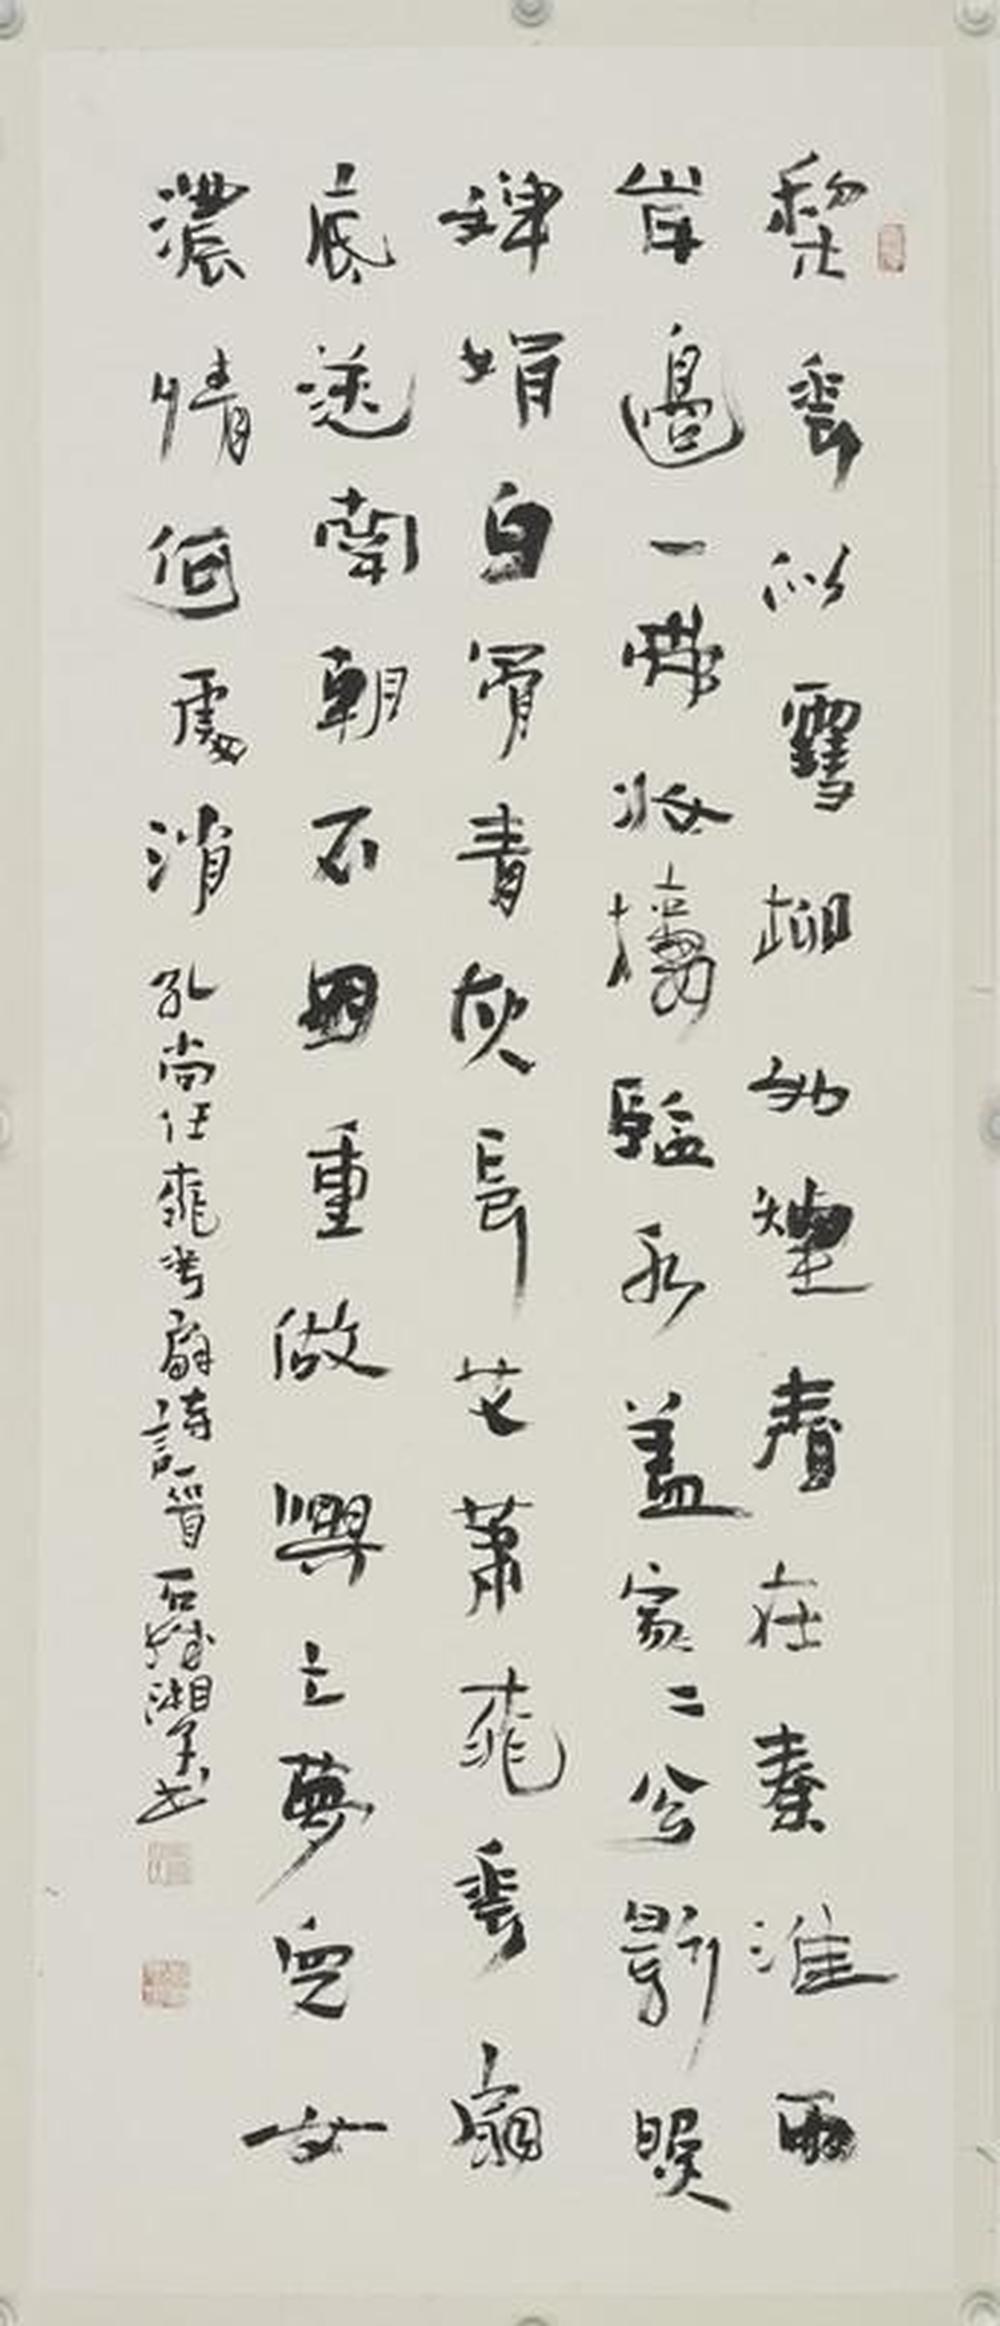 梨花似雪柳如煙春在秦淮兩
岸邊一帶妝樓臨水蓋家二分影照
嬋娟白骨青灰長艾蕭桃花扇
底送南朝不因重做興亡夢兒女
濃情何處消 孔尚任桃花扇詩一首 石城湘書